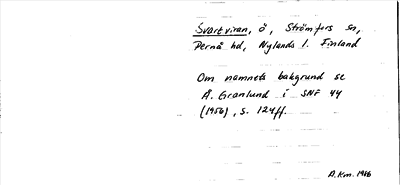 Svartviran, ö, Strömfors sn,
Pernå hd, Nylands l. Finland
Om namnets bakgrund se
Å. Granlund i SNF 44
(1956), s. 124ff.
A. Km. 1966